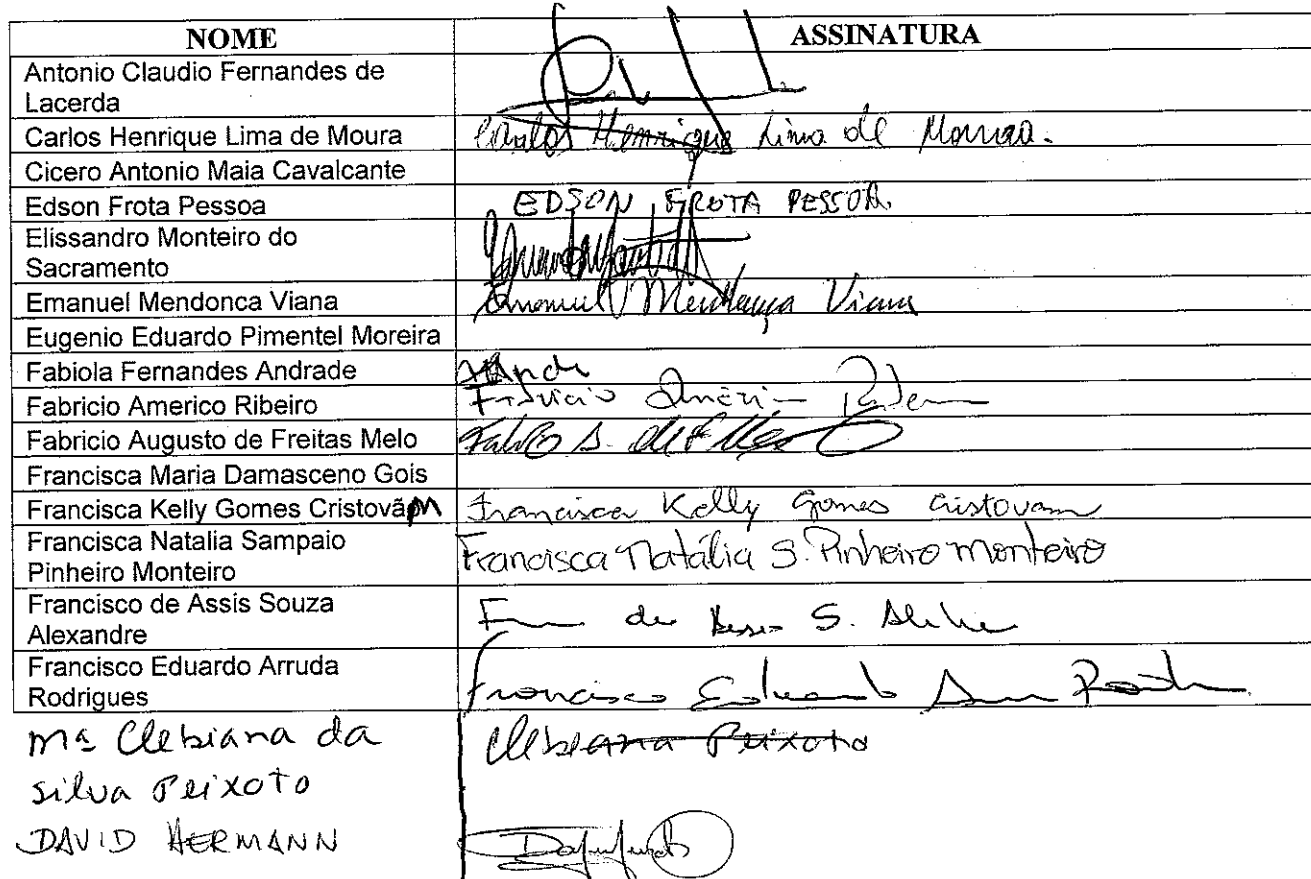 NOME ASSINATURA
Antonio Claudio Fernandes de
Lacerda
Carlos Henrique Lima de Moura Carlos Henrique Lima de Moura.
Cicero Antonio Maia Cavalcante
Edson Frota Pessoa EDSON FROTA PESSOA
Elissandro Monteiro do
Sacramento
Emanuel Mendonca Viana Emanuel Mendonça Viana
Eugenio Eduardo Pimentel Moreira
Fabiola Fernandes Andrade
Fabricio Americo Ribeiro Fabricio Américo
Fabricio Augusto de Freitas Melo
Francisca Maria Damasceno Gois
Francisca Kelly Gomes Cristovãm Francisca Kelly Gomes Cristovam
Francisca Natalia Sampaio
Pinheiro Monteiro Francisca Natália S. Pinheiro Monteiro
Francisco de Assis Souza
Alexandre de S.
Francisco Eduardo Arruda
Rodrigues Francisco Eduardo
Mª Clebiana da Clebiana Peixoto
Silva Peixoto
DAVID HERMANN